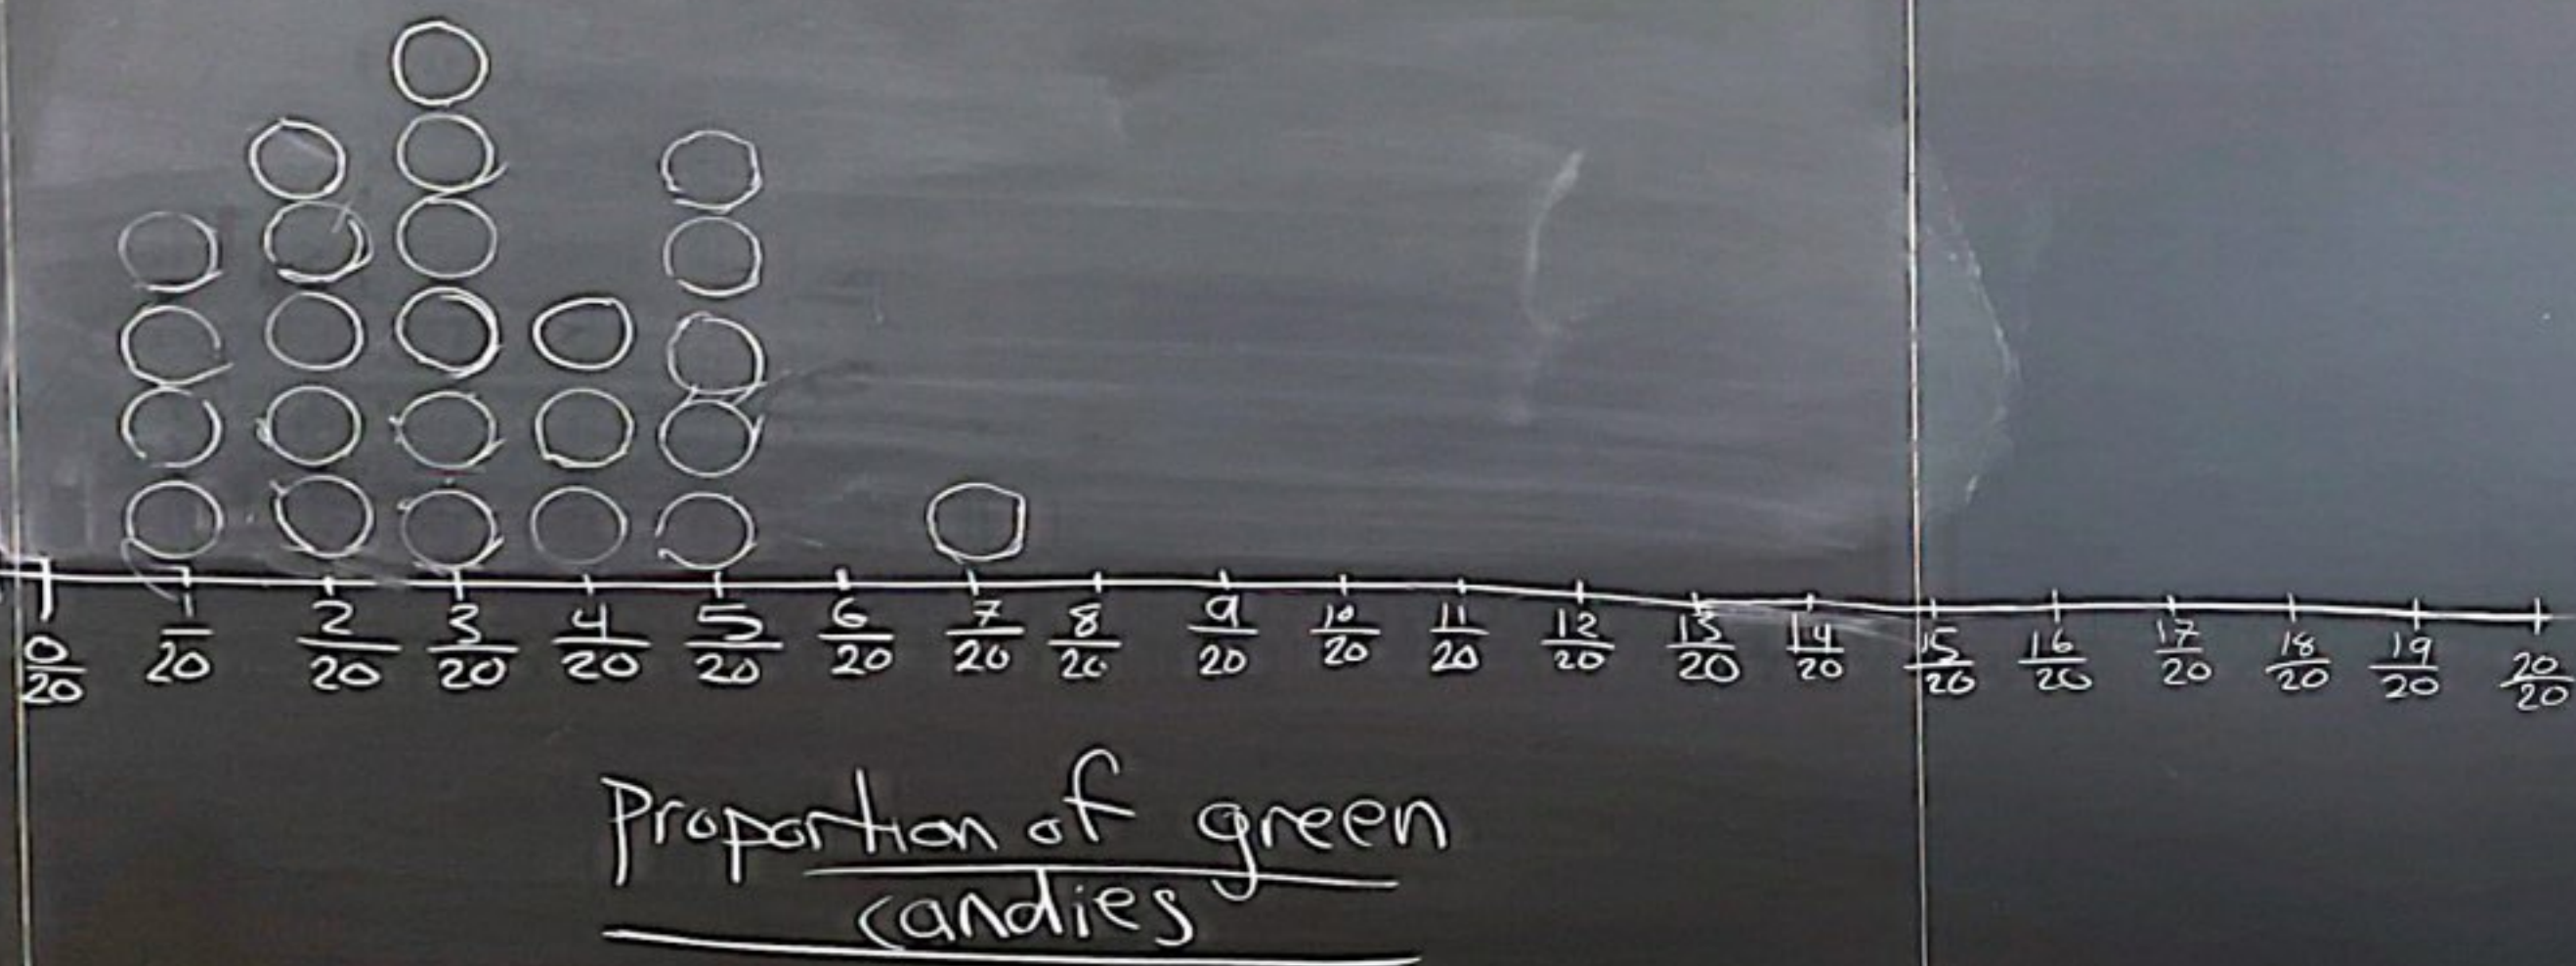 0/20 1/20 2/20 3/20 4/20 5/20 6/20 7/20 8/20 9/20 10/20 11/20 12/20 13/20 14/20 15/20 16/20 17/20 18/20 19/20 20/20
Proportion of green
candies